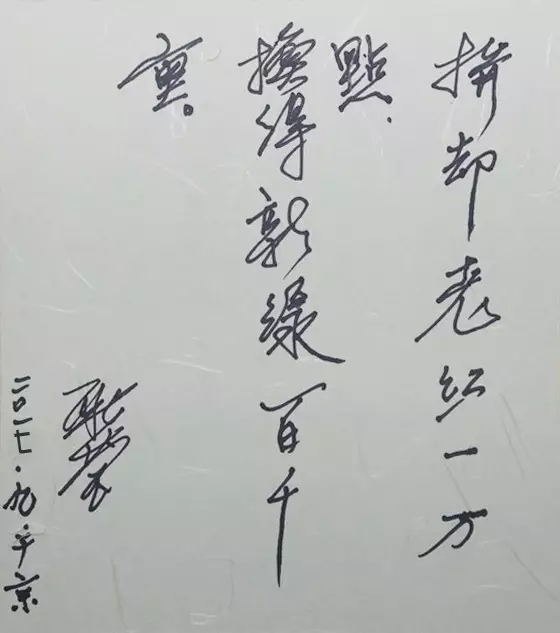 拚却老红一万
點、
換得新绿百千
重。
二〇一七·九·于京